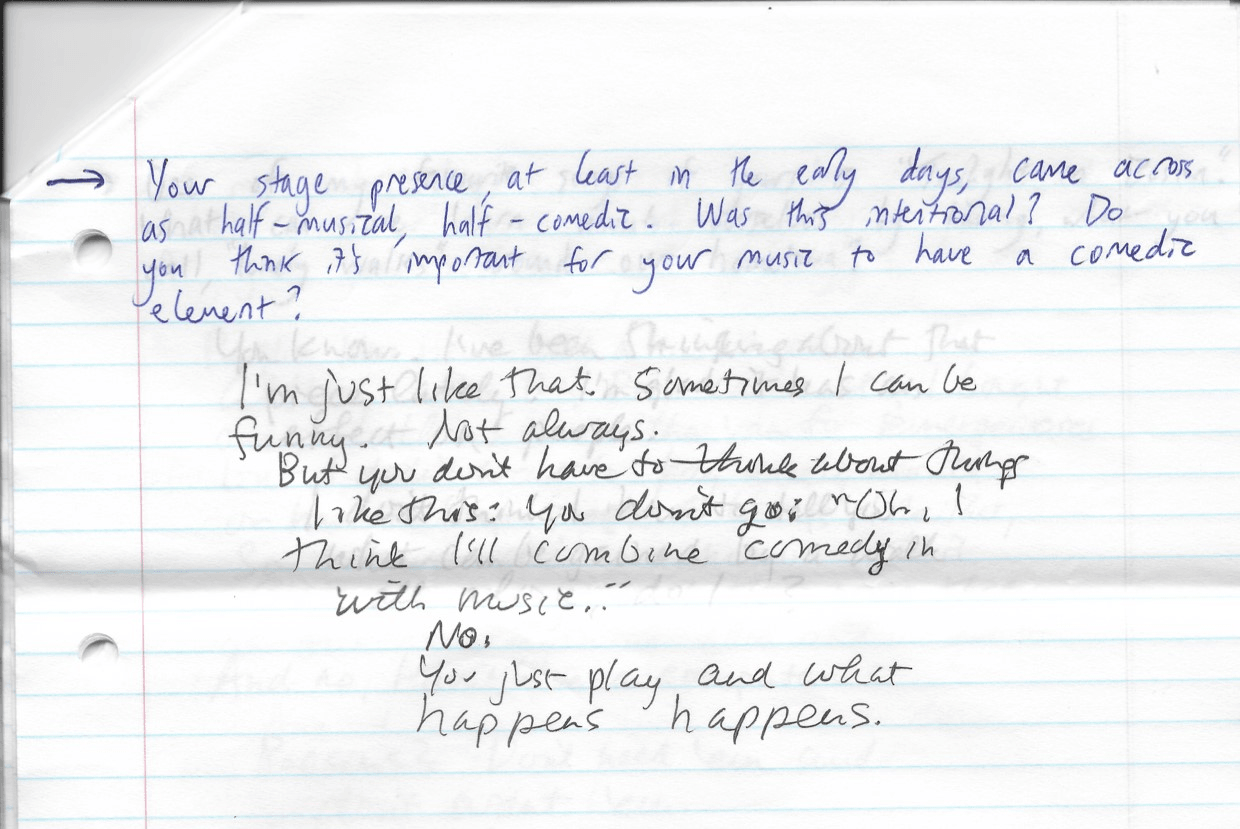 → Your stage presence, at least in the early days, came across
as half-musical, half-comedic. Was this intentional? Do
you think it's important for your music to have a comedic
element?
I'm just like that. Sometimes I can be
funny. Not always.
But you don't have to think about things
like this: You don't go: "Oh, I
think I'll combine comedy in
with music."
No.
You just play and what
happens happens.